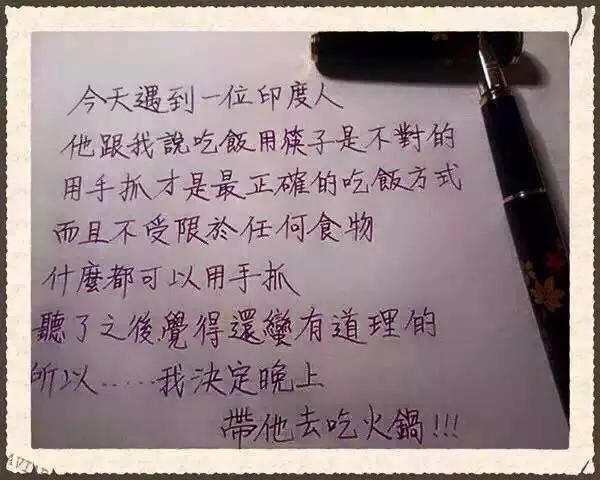 今天遇到一位印度人
他跟我說吃飯用筷子是不對的
用手抓才是最正確的吃飯方式
而且不受限於任何食物
什麼都可以用手抓
聽了之後覺得還蠻有道理的
所以......我決定晚上
帶他去吃火鍋!!!